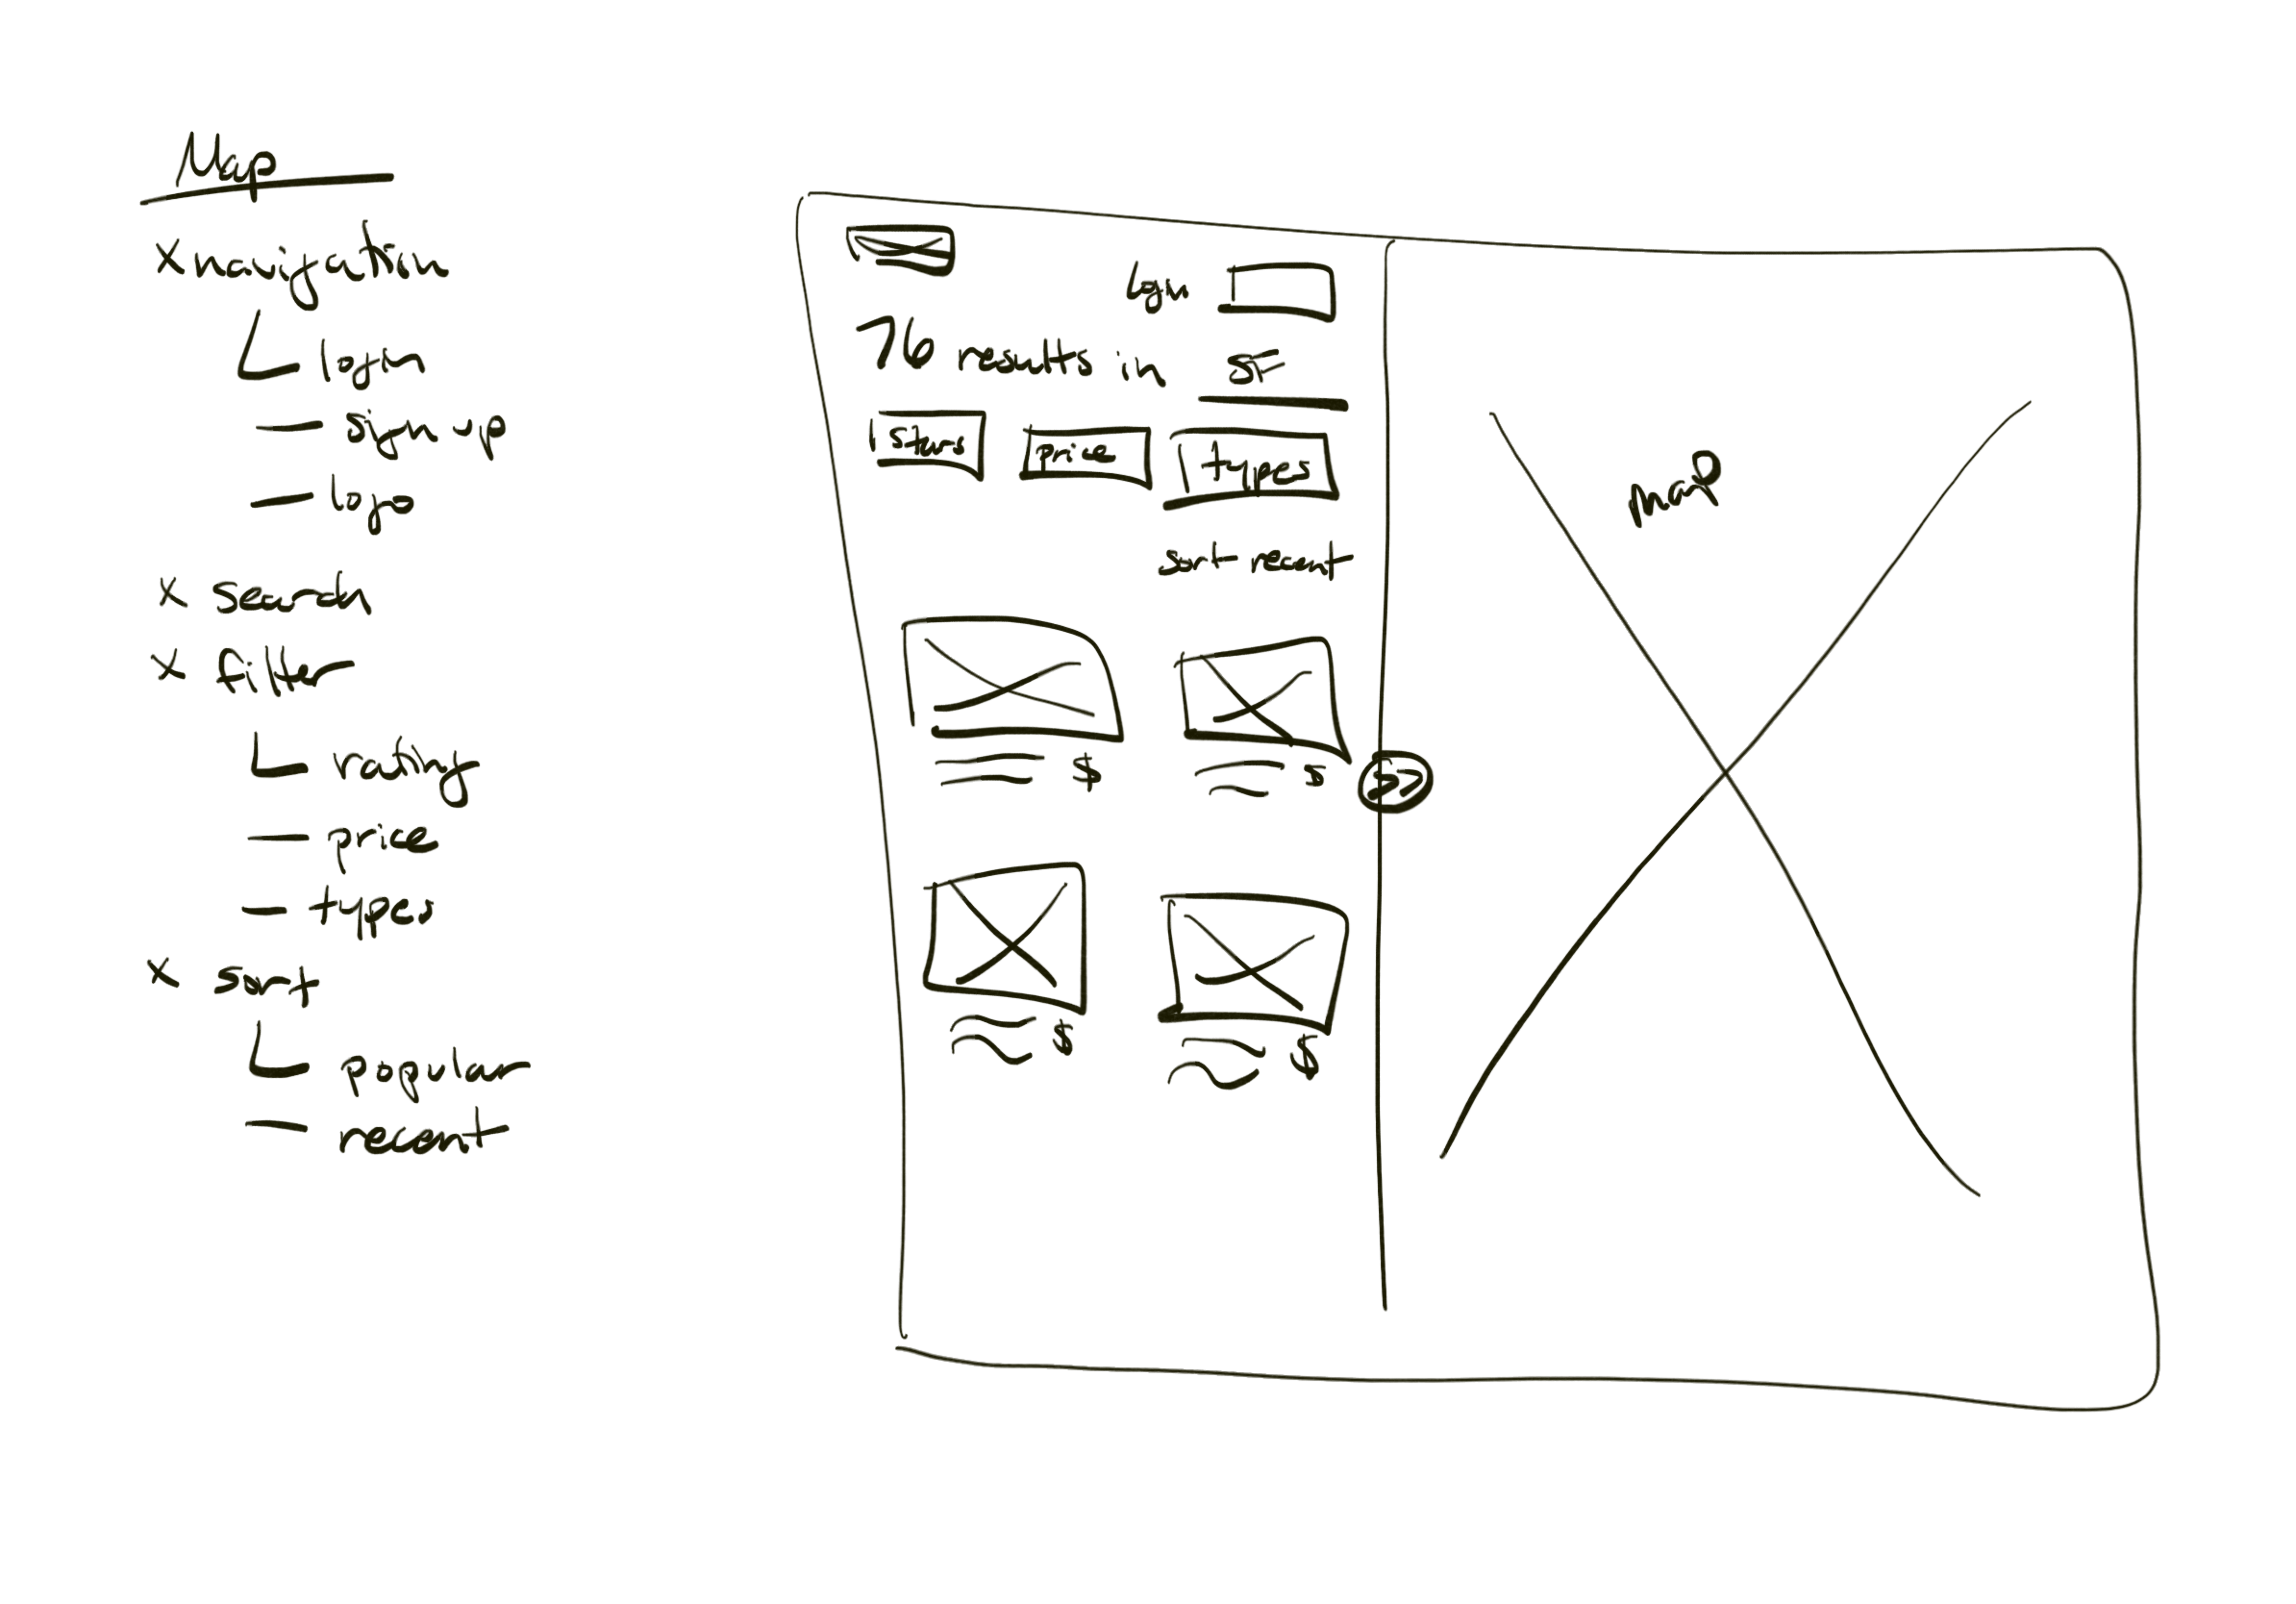 Map
x navigation
login
— sign up
— logo
x search
x filter
rating
— price
— types
x sort
popular
— recent
login
76 results in SF
stars price types
sort recent
$ $
$ $
>>
map